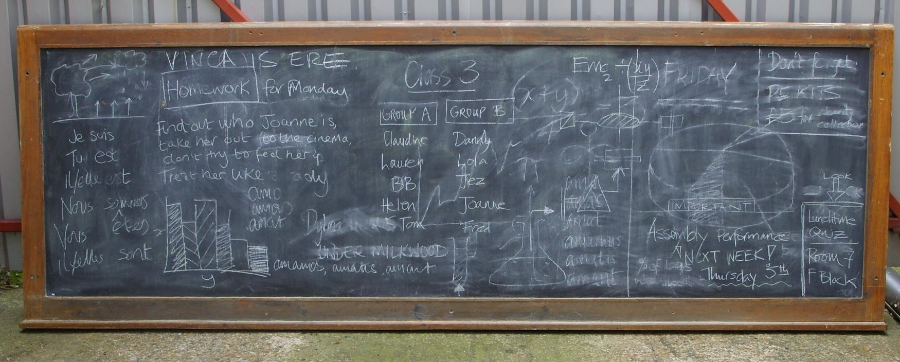 VINCA IS ERE
Homework for Monday
Find out who Joanne is,
take her out to the cinema,
don't try to feel her up.
Treat her like a lady
Je suis
Tu est
il/elle est
Nous sommes
Vous êtes
il/elles sont
y
amo
amas
amat
amamos, amatis, amant
Class 3
GROUP A
Claudine
Lauren
BB
Helen
Tom
GROUP B
Danny
Lola
Jez
Joanne
Fred
Dylan
UNDER MILKWOOD
(x+y)
Emc2 = (xy/z)
amamus
amatis
amant
FRIDAY
IMPORTANT
Assembly Performance
NEXT WEEK!
Thursday 5th
Don't forget
PE KITS
for
collection
Look
Lunchtime
QUIZ
Room 7
F Block